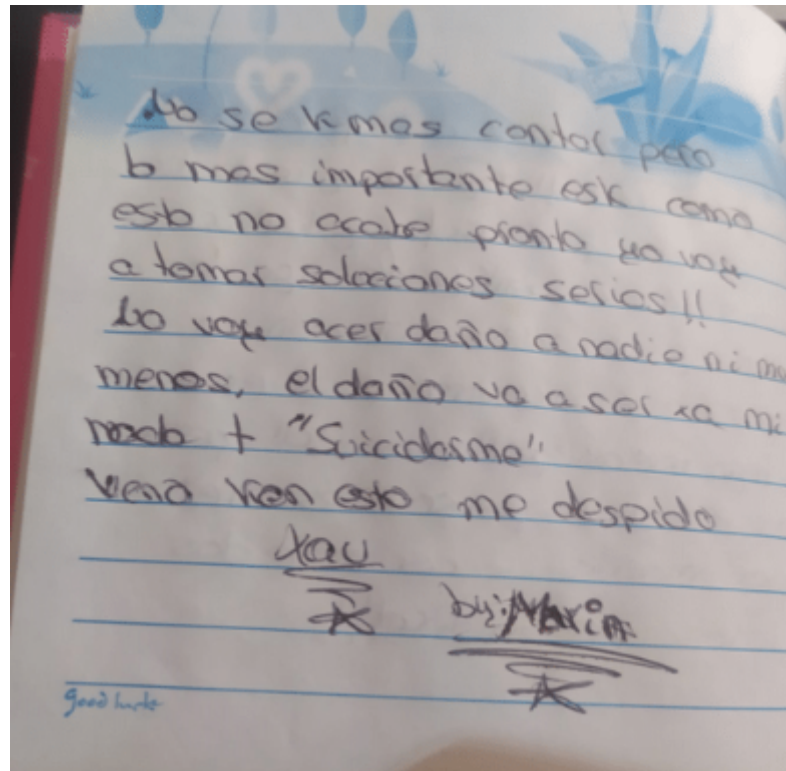 No se k mas contar pero
lo mas importante esk como
esto no acabe pronto yo voy
a tomar solociones serios!!
No voy acer daño a nadie ni mo
menos, el daño va a ser xa mi
nada + "Suicidarme"
Veno ken esto me despido
xau
by: Marin
good luck